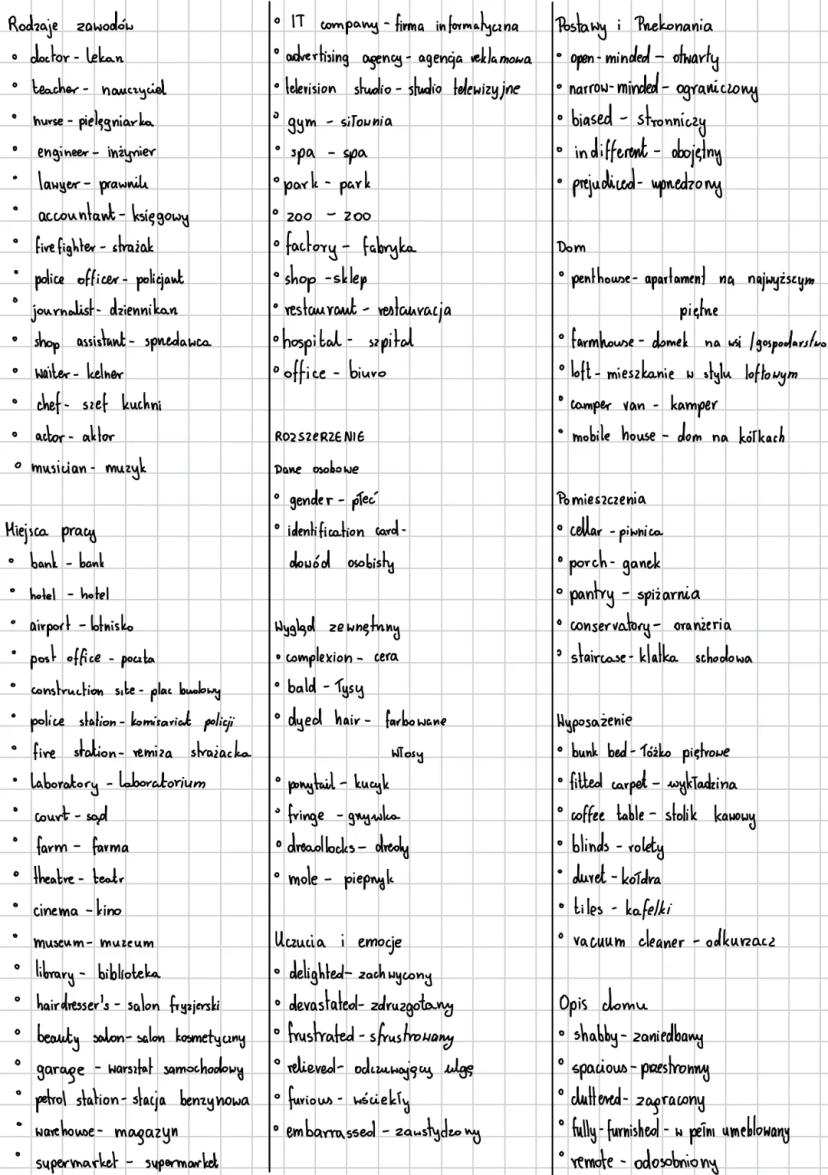 Rodzaje zawodów
• doctor - lekarz
• teacher - nauczyciel
• nurse - pielęgniarka
• engineer - inżynier
• lawyer - prawnik
• accountant - księgowy
• firefighter - strażak
• police officer - policjant
• journalist - dziennikarz
• shop assistant - sprzedawca
• waiter - kelner
• chef - szef kuchni
• actor - aktor
• musician - muzyk
Miejsca pracy
• bank - bank
• hotel - hotel
• airport - lotnisko
• post office - poczta
• construction site - plac budowy
• police station - komisariat policji
• fire station - remiza strażacka
• laboratory - laboratorium
• court - sąd
• farm - farma
• theatre - teatr
• cinema - kino
• museum - muzeum
• library - biblioteka
• hairdresser's - salon fryzjerski
• beauty salon - salon kosmetyczny
• garage - warsztat samochodowy
• petrol station - stacja benzynowa
• warehouse - magazyn
• supermarket - supermarket
• IT company - firma informatyczna
• advertising agency - agencja reklamowa
• television studio - studio telewizyjne
• gym - siłownia
• spa - spa
• park - park
• zoo - zoo
• factory - fabryka
• shop - sklep
• restaurant - restauracja
• hospital - szpital
• office - biuro
ROZSZERZENIE
Dane osobowe
• gender - płeć
• identification card -
dowód osobisty
Wygląd zewnętrzny
• complexion - cera
• bald - łysy
• dyed hair - farbowane
włosy
• ponytail - kucyk
• fringe - grzywka
• dreadlocks - dredy
• mole - pieprzyk
Uczucia i emocje
• delighted - zachwycony
• devastated - zdruzgotany
• frustrated - sfrustrowany
• relieved - odczuwający ulgę
• furious - wściekły
• embarrassed - zawstydzony
Postawy i Przekonania
• open-minded - otwarty
• narrow-minded - ograniczony
• biased - stronniczy
• indifferent - obojętny
• prejudiced - uprzedzony
Dom
• penthouse - apartament na najwyższym
piętrze
• farmhouse - domek na wsi / gospodarstwo
• loft - mieszkanie w stylu loftowym
• camper van - kamper
• mobile house - dom na kółkach
Pomieszczenia
• cellar - piwnica
• porch - ganek
• pantry - spiżarnia
• conservatory - oranżeria
• staircase - klatka schodowa
Wyposażenie
• bunk bed - łóżko piętrowe
• fitted carpet - wykładzina
• coffee table - stolik kawowy
• blinds - rolety
• duvet - kołdra
• tiles - kafelki
• vacuum cleaner - odkurzacz
Opis domu
• shabby - zaniedbany
• spacious - przestronny
• cluttered - zagracony
• fully-furnished - w pełni umeblowany
• remote - odosobniony